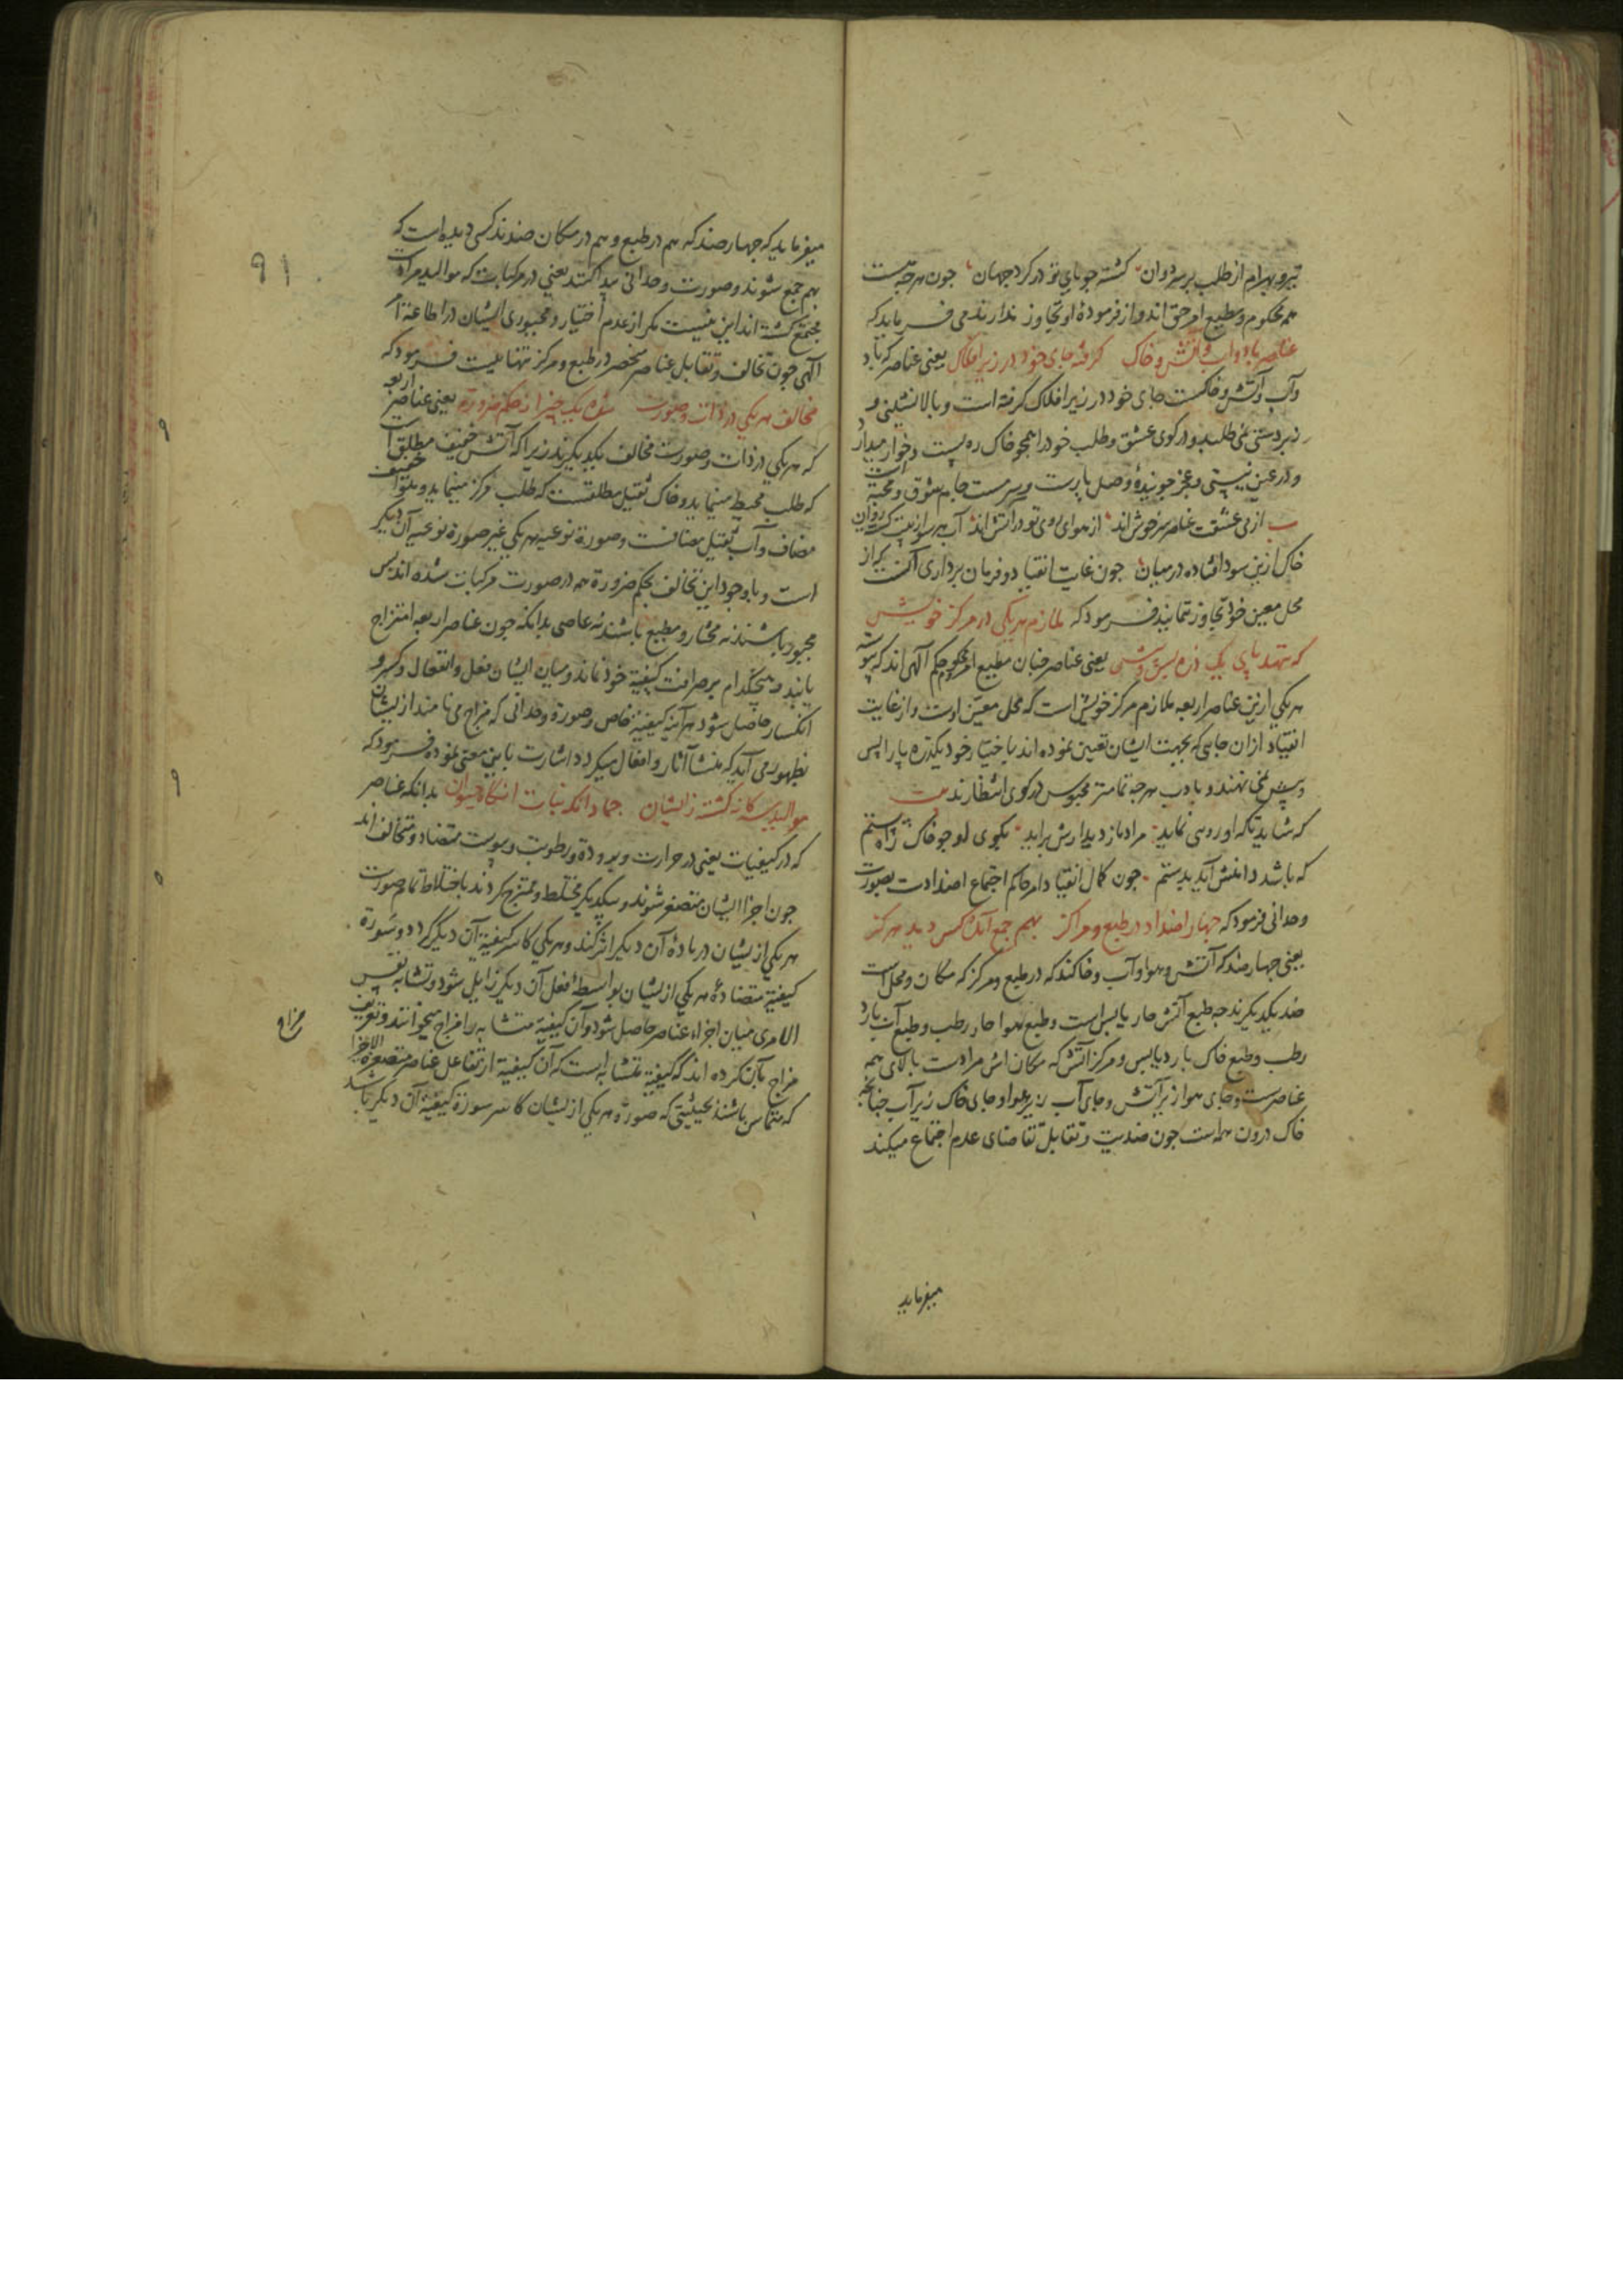 تیر و بهرام از طلب بر سر دوان گشته جویای تو در کرد جهان جون هرجه هست
همه محکوم و مطیع امر حق اند و از فرمودهٔ او تجاوز ندارند می فرماید که
عناصر باد و آب و آتش و خاک گرفته جای خود در زیر افلاک یعنی عناصر که باد
و آب و آتش و خاکست جای خود در زیر افلاک گرفته است و بالانشینی و
زبردستی نمی طلبد و در کوی عشق و طلب خود را همجو خاک ره پست و خوار میدارد
و در عین نیستی و عجز جویندهٔ وصل یارست و سرمست جام شوق و محبة است
از می عشقت عناصر سرخوش اند از هوای روی تو در آتش اند آب هر سو از پیت روان
خاک ازین سودا فتاده در میان جون غایت انقیاد و فرمان برداری آنست که از
محل معین خود تجاوز ننمایند فرمود که ملازم هر یکی در مرکز خویش
که ننهد پای یک ذره پس و پیش یعنی عناصر جنان مطیع امر و محکوم حکم آلهی اند که پیوسته
هر یکی ازین عناصر اربعه ملازم مرکز خویش است که محل معین اوست و از غایت
انقیاد ازان جایی که بجهت ایشان تعیین نموده اند باختیار خود یکذره پا را پس
و پیش نمی نهند و بادب هرجه تمامتر محبوس در کوی انتظارند بیت
که شاید ناکه او روسی نماید مراد باز دیدارش براید بکوی او جو خاک راه ستم
که باشد دامنش آید بدستم جون کمال انقیاد امر حاکم اجتماع اضدادست بصورت
وحدانی فرمود که جهار اضداد در طبع و مراکز بهم جمع آمد کس دید هرکز
یعنی جهار ضد که آتش و هوا و آب و خاکند که در طبع و مرکز که مکان و محل است
ضد یکدیکرند جه طبع آتش حار یابس است و طبع هوا حار رطب و طبع آب بارد
رطب و طبع خاک بارد یابس و مرکز آتش که مکان اش مرادست بالای همه
عناصرست و جای هوا زیر آتش و جای آب زیر هوا و جای خاک زیر آب جنانجه
خاک درون همه است جون ضدیت و تقابل تقاضای عدم اجتماع میکند
میفرماید
۹۱
میفرماید که جهار ضد که هم در طبع و هم در مکان ضدند کسی دیده است که
بهم جمع شوند و صورت وحدانی پیدا کنند یعنی در مرکبات که موالیدمراد است
مجتمع کشته اند این نیست مکر از عدم اختیار و مجبوری ایشان در اطاعة امر
آلهی جون تخالف و تقابل عناصر منحصر در طبع و مرکز تنها نیست فرمود که
مخالف هر یکی در ذات و صورت شده یک چیز از حکم ضرورت یعنی عناصر اربعه
که هر یکی در ذات و صورت مخالف یکدیکرند زیرا که آتش خفیف مطلق است
که طلب محیط مینماید و خاک ثقیل مطلقست که طلب مرکز مینماید و هوا خفیف
مضاف و آب ثقیل مضافست و صورة نوعیه هر یکی غیر صورة نوعیه آن دیکر
است و با وجود این تخالف بحکم ضرورة همه در صورت مرکبات شده اند پس
مجبور باشند نه مختار و مطیع باشند نه عاصی بدانکه جون عناصر اربعه امتزاج
یابند هیچکدام بر صرافت کیفیة خود نماند و میان ایشان فعل و انفعال و کسر و
انکسار حاصل شود هر آینه کیفیة خاص و صورة وحدانی که مزاج می نامند از ایشان
بظهور می آید که منشا آثار و افعال میکردد اشارت باین معنی نموده فرمود که
موالید سه کانه کشته زایشان جماد آنکه نبات آنکاه حیوان بدانکه عناصر
که در کیفیات یعنی در حرارت و برودة و رطوبت و یبوست متضاد و متخالف اند
جون اجزا ایشان متصغر شوند و بیکدیکر مختلط و ممتزج کردند باختلاط تمام صورت
هر یکی از یشان در مادهٔ آن دیکر اثر کند و هر یکی کاسر کیفیة آن دیکر کردد و سورة
کیفیة متضادهٔ هر یکی از یشان بواسطهٔ فعل آن دیکر زایل شود و تشابه نفس
الامری میان اجزاء عناصر حاصل شود و آن کیفیة متشابه را مزاج میخوانند و تعریف
مزاج بآن کرده اند که کیفیة متشابه است که آن کیفیة از تفاعل عناصر متصغرة الاجزا
که متماس باشند بحیثیتی که صورة هر یکی از یشان کاسر سورة کیفیة آن دیکر باشد
مزاج